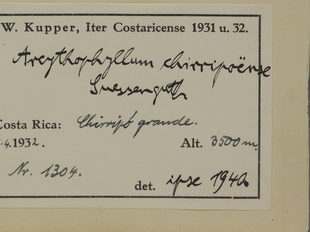 W. Kupper, Iter Costaricense 1931 u. 32.
Arcythophyllum chirripoënse
Suessenguth
Costa Rica: Chirripó grande.
.4.1932. Alt. 3500 m.
Nr. 1304.
det. ipse 1942